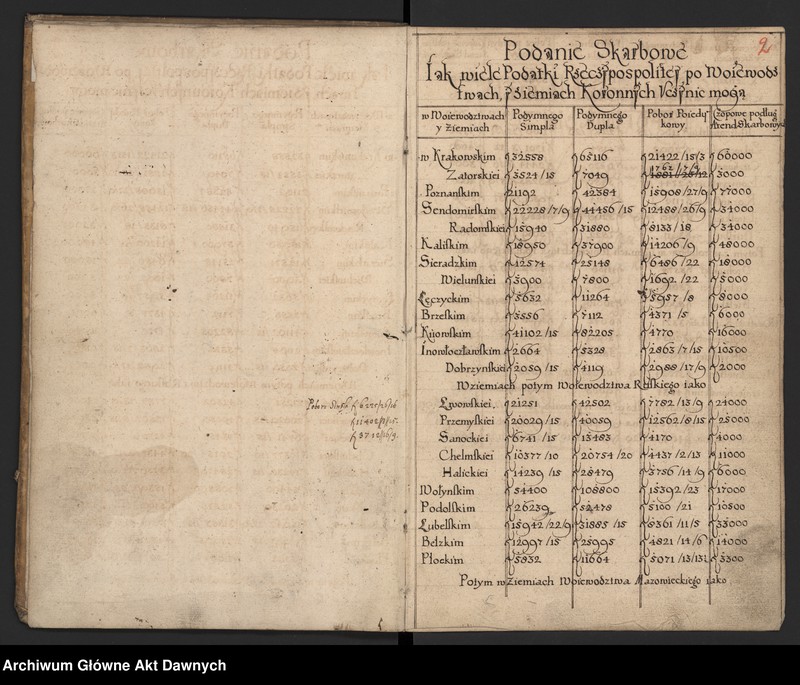 Pobor Simpla f 6225/26/16
f 11402/8/15.
f 3712/26/9.
2
Podanie Skarbowe
Iak wiele Podatki Rzeczypospolitej po Woiewodz
twach, y Ziemiach Koronnych Uczynic mogą
w Woiewodztwach y Ziemiach | Podymnego Simpla | Podymnego Dupla | Pobor Poiedyńkowy | Czopowe podług Arend Skarbowych
w Krakowskim f 32558 f 65116 f 21422/15/3 f 60000
Zatorskiej f 3524/15 f 7049 f 3000
Poznanskim f 21192 f 42384 f 15908/27/9 f 77000
Sendomirskim f 22228/7/9 f 44456/15 f 12488/26/9 f 34000
Radomskiej f 15940 f 31880 f 8133/18 f 34000
Kaliskim f 18950 f 37900 f 14206/9 f 48000
Sieradzkim f 12574 f 25148 f 6486/22 f 18000
Wielunskiej f 3900 f 7800 f 1692/22 f 5000
Łęczyckim f 5632 f 11264 f 5957/8 f 8000
Brzeskim f 3556 f 7112 f 4371/5 f 6000
Kijowskim f 41102/15 f 82205 f 4770 f 16000
Inowłocławskim f 2664 f 5328 f 2863/7/15 f 10500
Dobrzynskiej f 2059/15 f 4119 f 2988/17/9 f 2000
W Ziemiach potym Woiewodztwa Ruskiego iako
Lwowskiei. f 21251 f 42502 f 7782/13/9 f 24000
Przemyskiei f 20029/15 f 40059 f 12562/8/15 f 25000
Sanockiei f 6741/15 f 13483 f 4170 f 4000
Chełmskiei f 10377/10 f 20754/20 f 4437/2/13 f 11000
Halickiei f 14239/15 f 28479 f 3756/14/9 f 6000
Wołynskim f 54400 f 108800 f 15392/23 f 17000
Podolskim f 26239 f 52478 f 5100/21 f 10500
Lubelskim f 15942/22/9 f 31885/15 f 8361/11/5 f 33000
Bełzkim f 12997/15 f 25995 f 4821/14/6 f 14000
Płockim f 5832 f 11664 f 5071/13/13½ f 3300
Potym w Ziemiach Woiewodztwa Mazowieckiego iako
Archiwum Główne Akt Dawnych